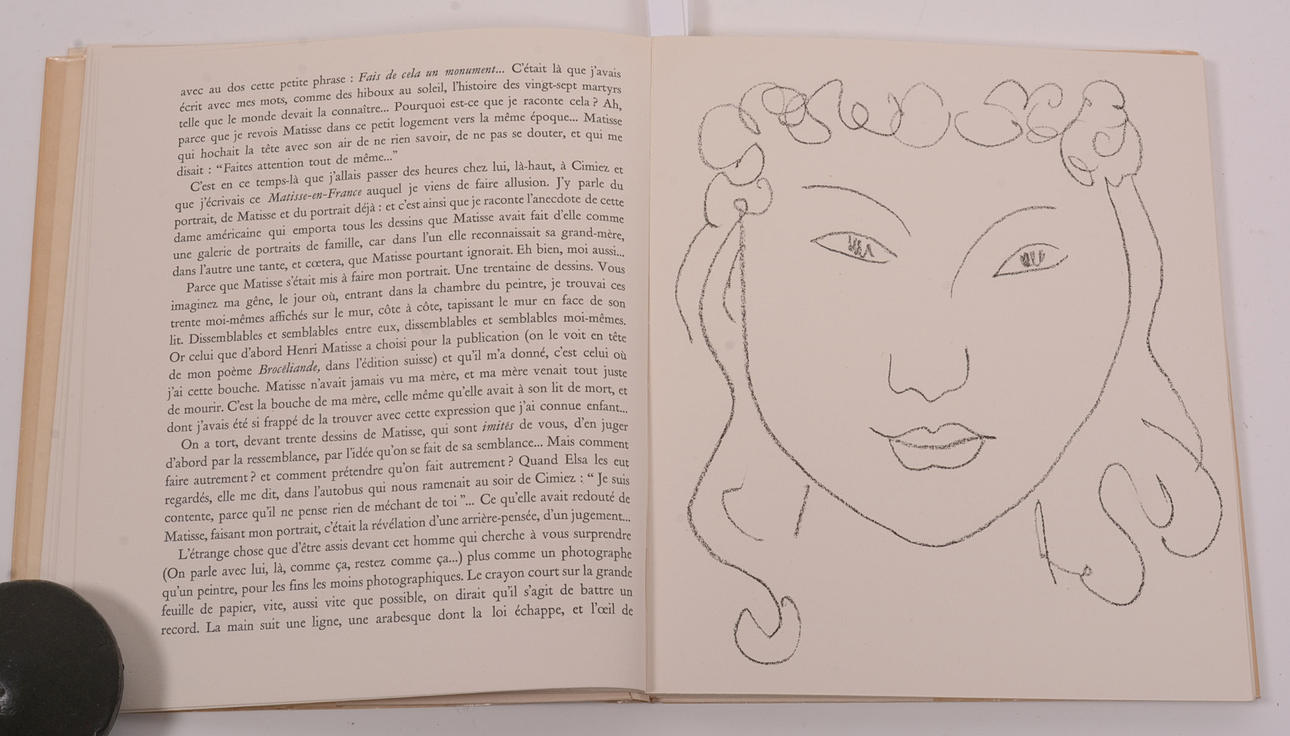 avec au dos cette petite phrase : Fais de cela un monument... C'était là que j'avais
écrit avec mes mots, comme des hiboux au soleil, l'histoire des vingt-sept martyrs
telle que le monde devait la connaître... Pourquoi est-ce que je raconte cela ? Ah,
parce que je revois Matisse dans ce petit logement vers la même époque... Matisse
qui hochait la tête avec son air de ne rien savoir, de ne pas se douter, et qui me
disait : “Faites attention tout de même...”
C'est en ce temps-là que j'allais passer des heures chez lui, là-haut, à Cimiez et
que j'écrivais ce Matisse-en-France auquel je viens de faire allusion. J'y parle du
portrait, de Matisse et du portrait déjà : et c'est ainsi que je raconte l'anecdote de cette
dame américaine qui emporta tous les dessins que Matisse avait fait d'elle comme
une galerie de portraits de famille, car dans l'un elle reconnaissait sa grand-mère,
dans l'autre une tante, et cœtera, que Matisse pourtant ignorait. Eh bien, moi aussi...
Parce que Matisse s'était mis à faire mon portrait. Une trentaine de dessins. Vous
imaginez ma gêne, le jour où, entrant dans la chambre du peintre, je trouvai ces
trente moi-mêmes affichés sur le mur, côte à côte, tapissant le mur en face de son
lit. Dissemblables et semblables entre eux, dissemblables et semblables moi-mêmes.
Or celui que d'abord Henri Matisse a choisi pour la publication (on le voit en tête
de mon poème Brocéliande, dans l'édition suisse) et qu'il m'a donné, c'est celui où
j'ai cette bouche. Matisse n'avait jamais vu ma mère, et ma mère venait tout juste
de mourir. C'est la bouche de ma mère, celle même qu'elle avait à son lit de mort, et
dont j'avais été si frappé de la trouver avec cette expression que j'ai connue enfant...
On a tort, devant trente dessins de Matisse, qui sont imités de vous, d'en juger
d'abord par la ressemblance, par l'idée qu'on se fait de sa semblance... Mais comment
faire autrement ? et comment prétendre qu'on fait autrement ? Quand Elsa les eut
regardés, elle me dit, dans l'autobus qui nous ramenait au soir de Cimiez : “ Je suis
contente, parce qu'il ne pense rien de méchant de toi ”... Ce qu'elle avait redouté de
Matisse, faisant mon portrait, c'était la révélation d'une arrière-pensée, d'un jugement...
L'étrange chose que d'être assis devant cet homme qui cherche à vous surprendre
(On parle avec lui, là, comme ça, restez comme ça...) plus comme un photographe
qu'un peintre, pour les fins les moins photographiques. Le crayon court sur la grande
feuille de papier, vite, aussi vite que possible, on dirait qu'il s'agit de battre un
record. La main suit une ligne, une arabesque dont la loi échappe, et l'œil de